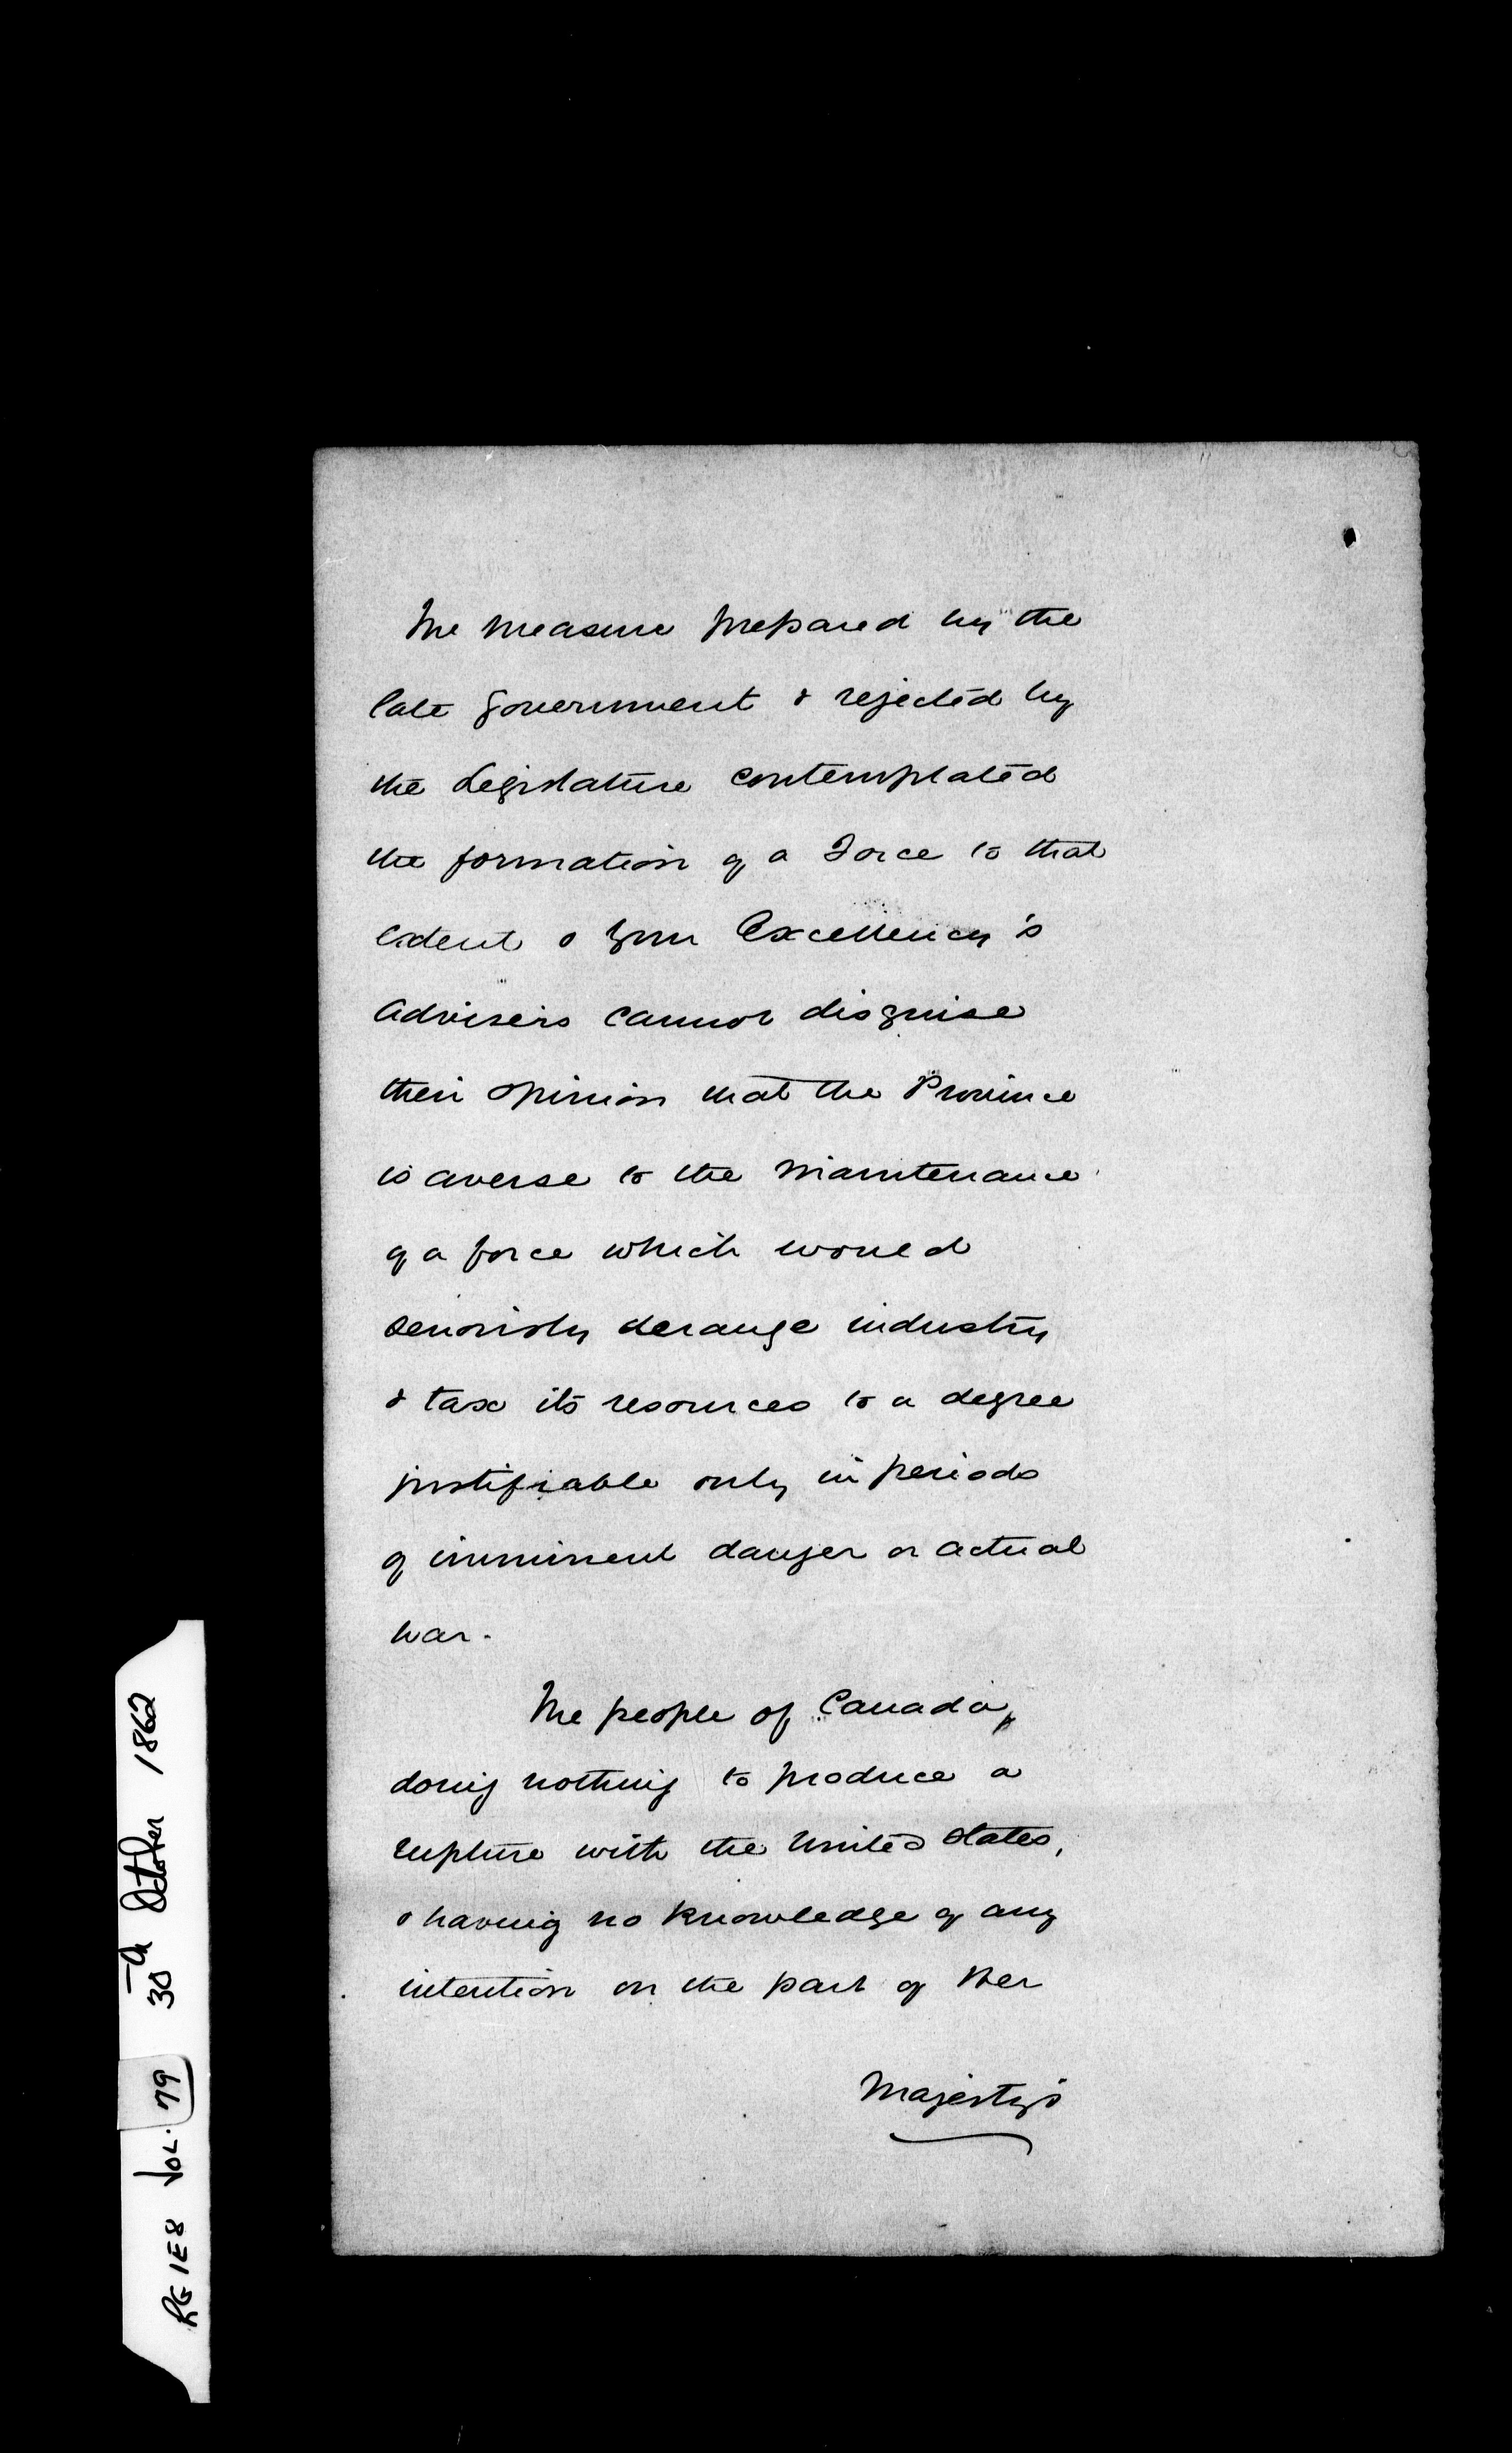 The measure prepared by the
late Government & rejected by
the Legislature contemplated
the formation of a Force to that
extent & Your Excellency's
Advisers cannot disguise
their opinion that the Province
is averse to the maintenance
of a force which would
seriously derange industry
& tax its resources to a degree
justifiable only in periods
of imminent danger or actual
war.
The people of Canada,
doing nothing to produce a
rupture with the United States,
& having no knowledge of any
intention on the part of Her
Majesty's
RG 1E8 VOL. 79 30th October 1862